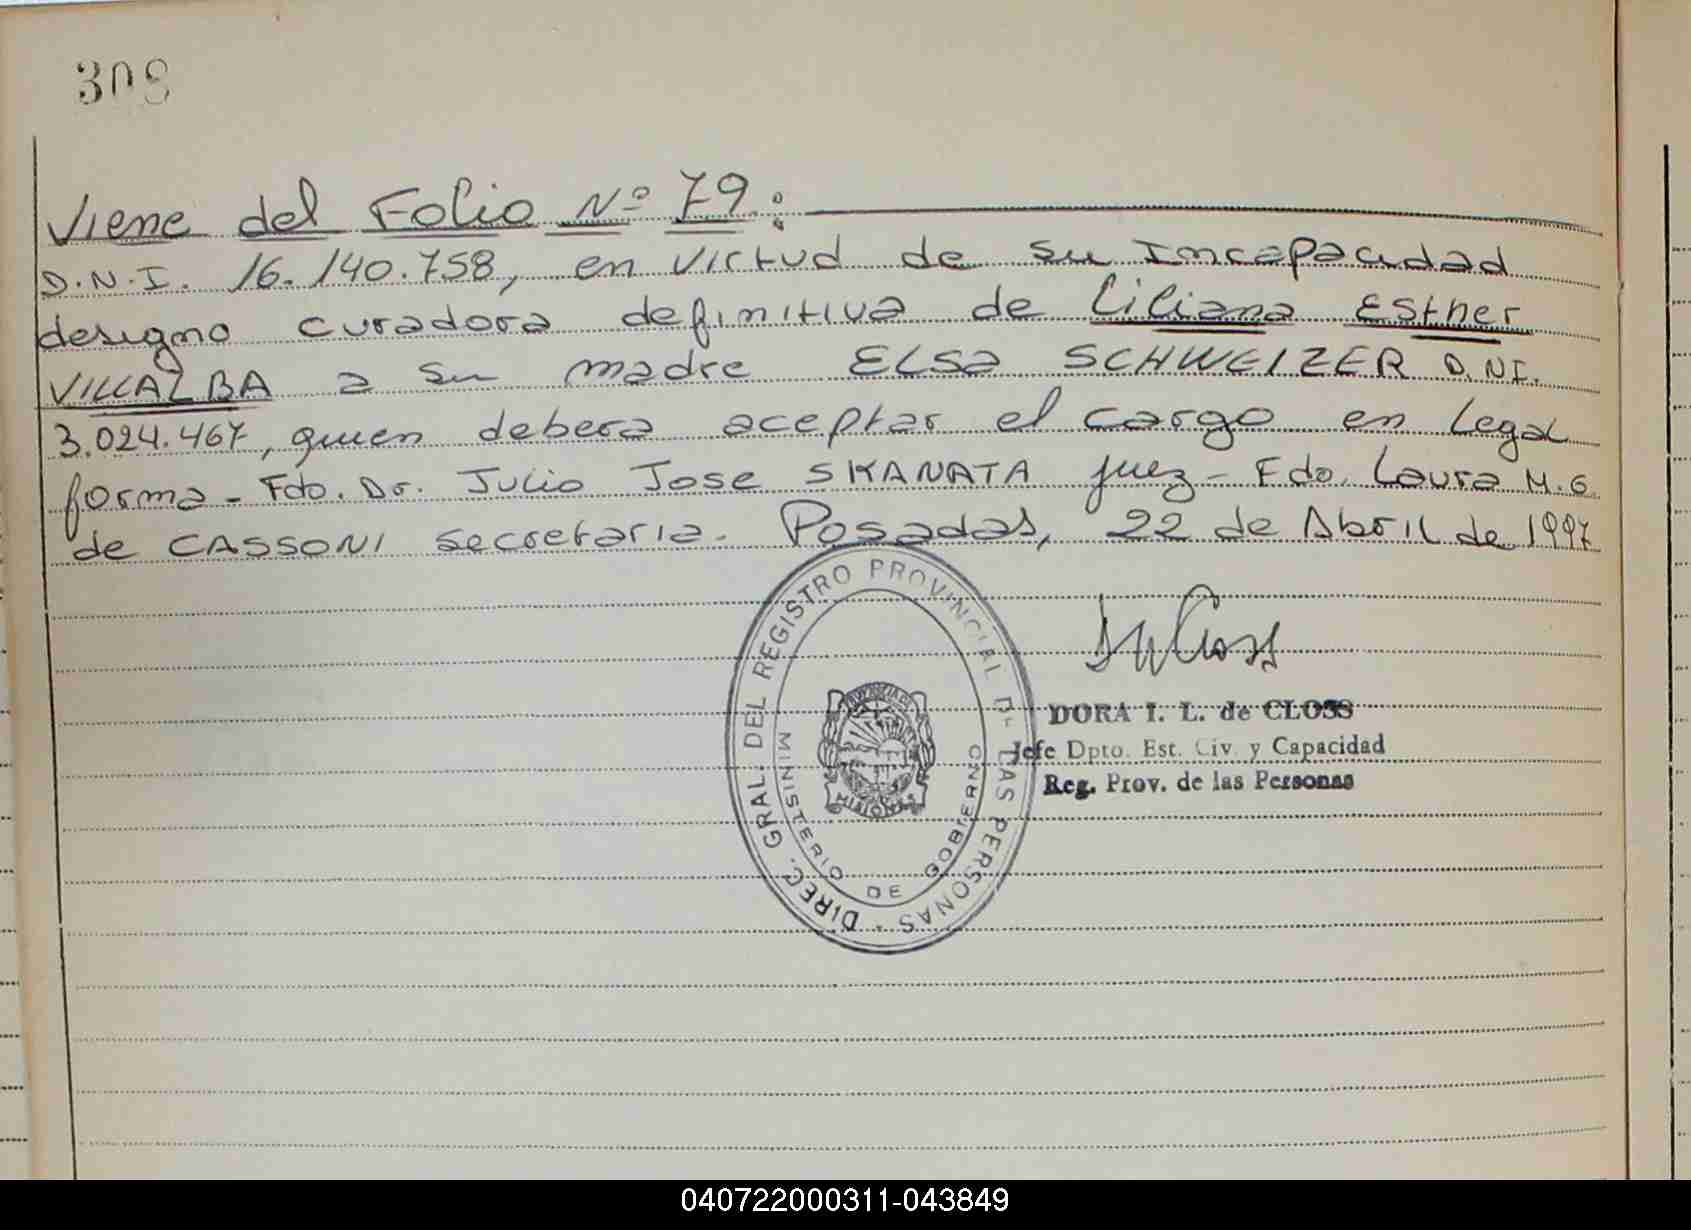 308
Viene del Folio Nº 79:
D.N.I. 16.140.758, en virtud de su Incapacidad
designo curadora definitiva de Liliana Esther
VILLALBA a su madre ELSA SCHWEIZER D.NI.
3.024.467, quien debera aceptar el cargo en legal
forma - Fdo. Dr. Julio Jose SKANATA juez - Fdo. Laura M.G.
de CASSONI secretaria. Posadas, 22 de Abril de 1997
DIREC. GRAL. DEL REGISTRO PROVINCIAL DE LAS PERSONAS -
MINISTERIO DE GOBIERNO
MISIONES
DORA I. L. de CLOSS
Jefe Dpto. Est. Civ. y Capacidad
Reg. Prov. de las Personas
040722000311-043849